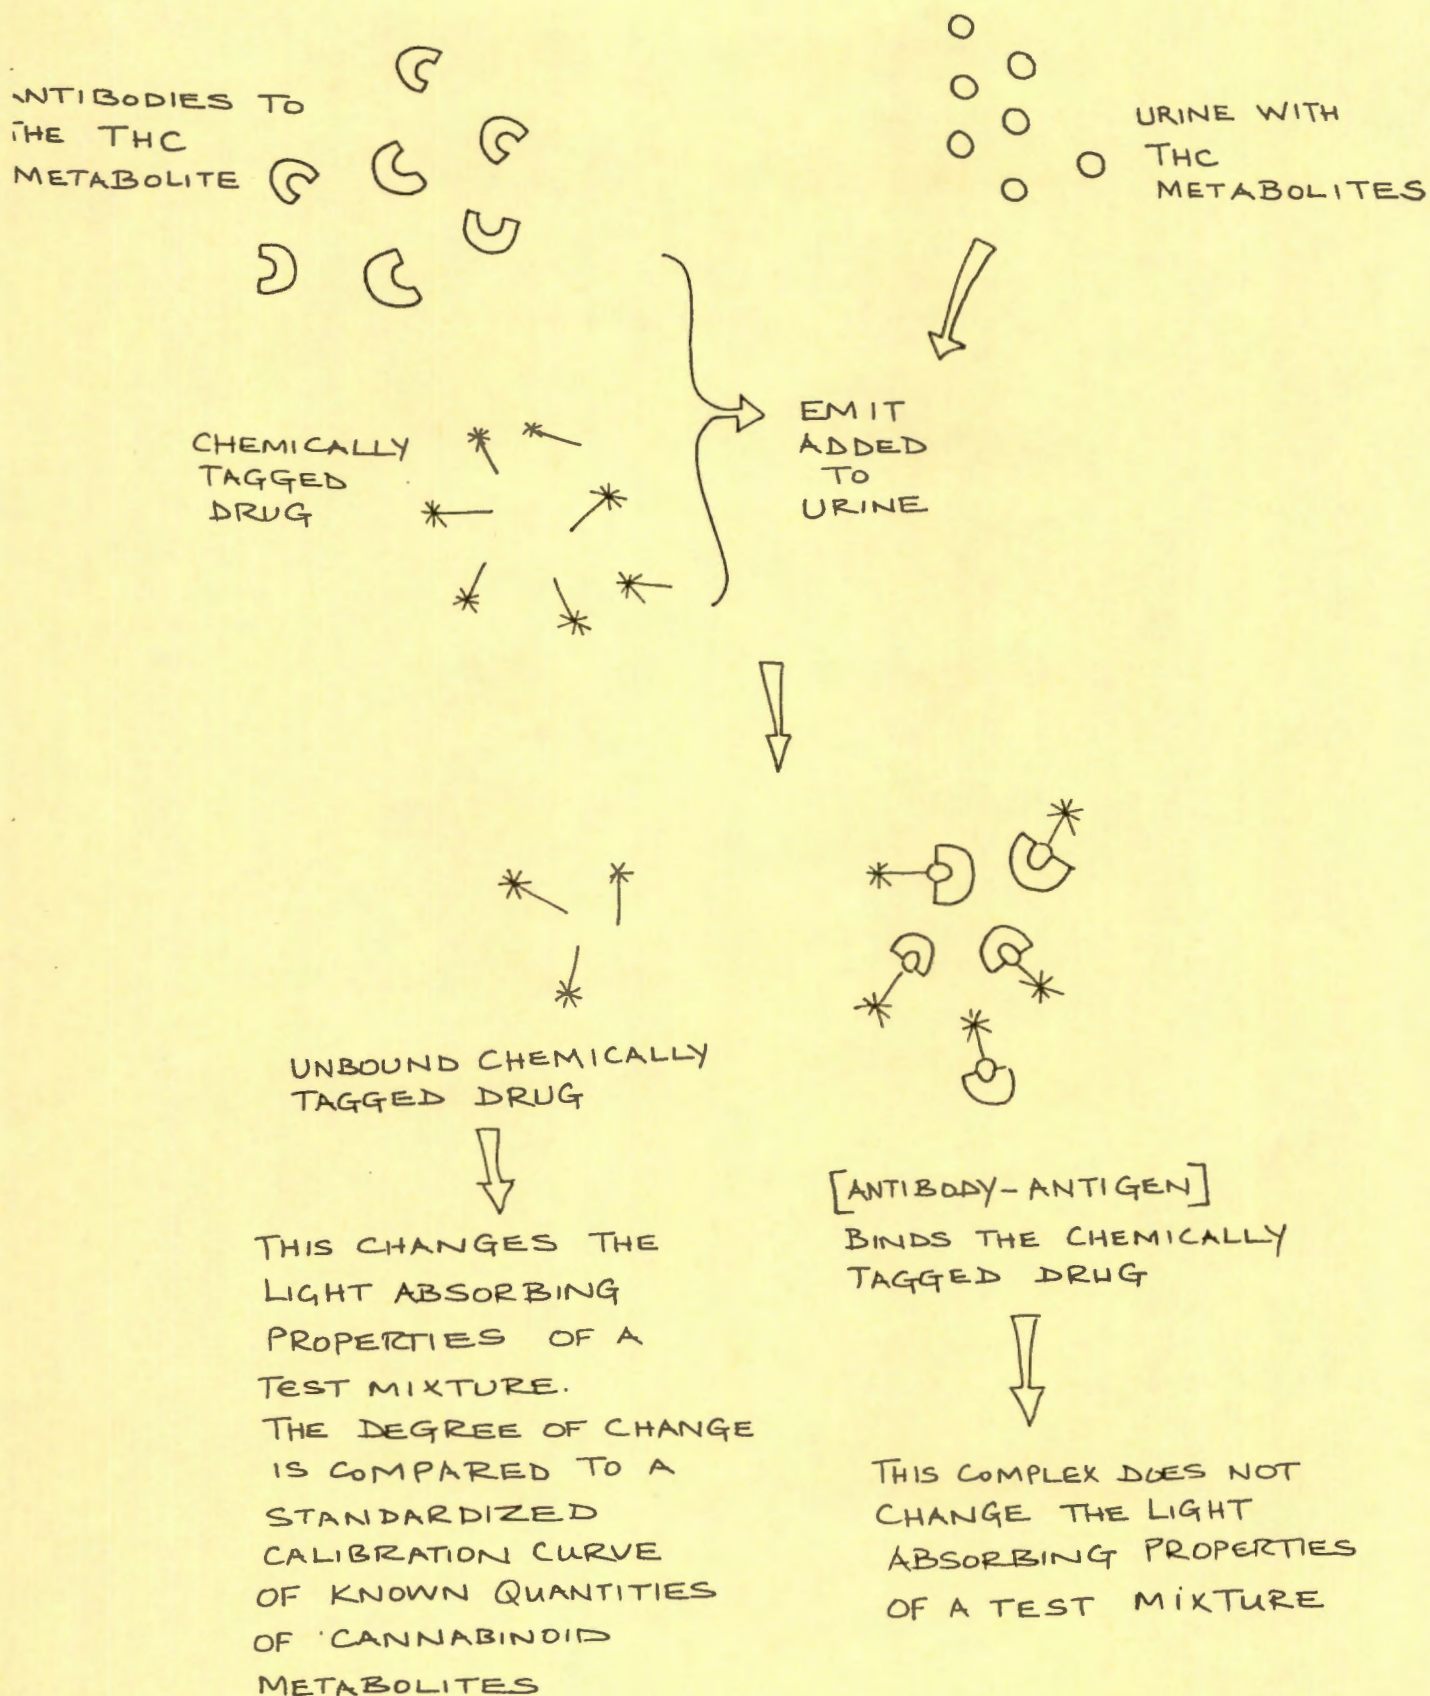 ANTIBODIES TO
THE THC
METABOLITE
URINE WITH
THC
METABOLITES
CHEMICALLY
TAGGED
DRUG
EMIT
ADDED
TO
URINE
UNBOUND CHEMICALLY
TAGGED DRUG
THIS CHANGES THE
LIGHT ABSORBING
PROPERTIES OF A
TEST MIXTURE.
THE DEGREE OF CHANGE
IS COMPARED TO A
STANDARDIZED
CALIBRATION CURVE
OF KNOWN QUANTITIES
OF CANNABINOID
METABOLITES
[ANTIBODY-ANTIGEN]
BINDS THE CHEMICALLY
TAGGED DRUG
THIS COMPLEX DOES NOT
CHANGE THE LIGHT
ABSORBING PROPERTIES
OF A TEST MIXTURE